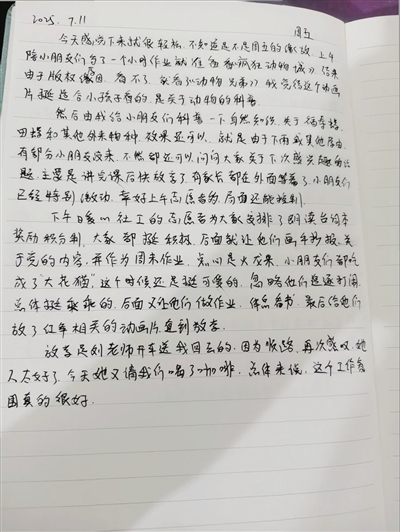 2025.7.11 周五
今天感觉下来就很轻松,不知道是不是周五的缘故,上午
陪小朋友们写了一个小时作业就准备看《疯狂动物城》,结果
由于版权原因,看不了,就看《动物兄弟》,我觉得这个动画
片挺适合小孩子看的,是关于动物的科普。
然后由我给小朋友们科普一下自然知识,关于福寿螺、
田螺和其他外来物种,效果还可以,就是由于下雨或其他原因,
有部分小朋友没来,不然都还可以问问大家关于下次感兴趣的话
题,主要是讲完课后快放学了,有家长都在外面等着了,小朋友们
已经特别激动,幸好上午志愿者为,局面还能控制。
下午暖心社工的志愿者为大家安排了朗读台词本
奖励积分制,大家都挺积极,后面就让他们画手抄报,关
于党的内容,并作为周末作业,点心是火龙果,小朋友们都吃
成了"大花猫",这个时候还是挺可爱的,忽略他们追逐打闹,
总体挺乖的,后面又让他们做作业,休息看书,最后给他们
放了红军相关的动画片直到放学。
放学是刘老师开车送我回去的,因为顺路,再次感叹,她
人太好了,今天她又请我们喝了咖啡,总体来说,这个工作氛
围真的很好。